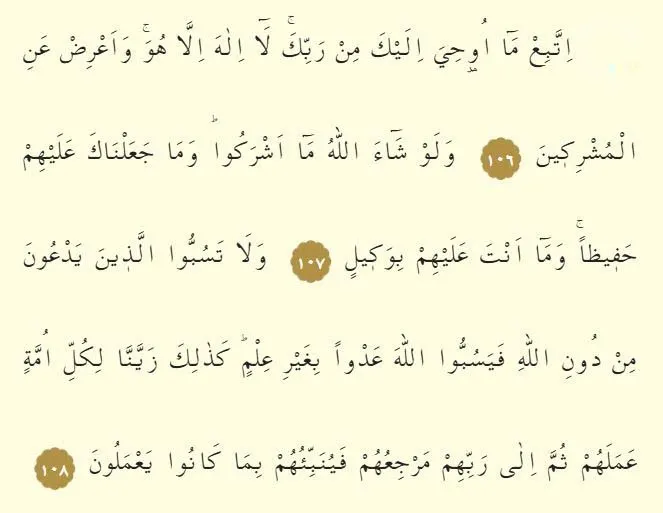 اِتَّبِعْ مَٓا اُو۫حِيَ اِلَيْكَ مِنْ رَبِّكَۚ لَٓا اِلٰهَ اِلَّا هُوَۚ وَاَعْرِضْ عَنِ
الْمُشْرِك۪ينَ ﴿١٠٦﴾ وَلَوْ شَٓاءَ اللّٰهُ مَٓا اَشْرَكُواۜ وَمَا جَعَلْنَاكَ عَلَيْهِمْ
حَف۪يظاًۚ وَمَٓا اَنْتَ عَلَيْهِمْ بِوَك۪يلٍ ﴿١٠٧﴾ وَلَا تَسُبُّوا الَّذ۪ينَ يَدْعُونَ
مِنْ دُونِ اللّٰهِ فَيَسُبُّوا اللّٰهَ عَدْواً بِغَيْرِ عِلْمٍۜ كَذٰلِكَ زَيَّنَّا لِكُلِّ اُمَّةٍ
عَمَلَهُمْ ثُمَّ اِلٰى رَبِّهِمْ مَرْجِعُهُمْ فَيُنَبِّئُهُمْ بِمَا كَانُوا يَعْمَلُونَ ﴿١٠٨﴾